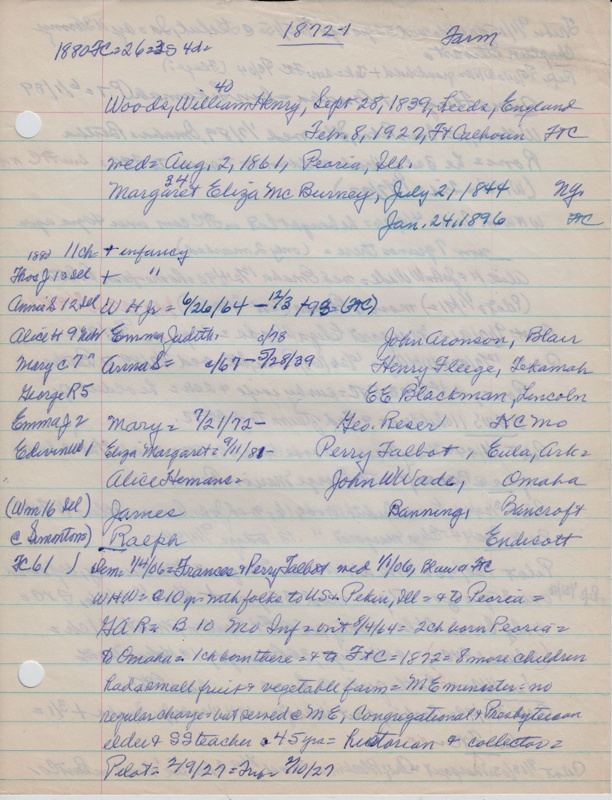 1872-1
1880 FC=26=3S 4d=
Farm
40
Woods, William Henry, Sept 28, 1839, Leeds, England
Feb. 8, 1927, Ft Calhoun FtC
wed= Aug. 2, 1861, Peoria, Ill.
34
Margaret Eliza McBurney, July 2, 1844 Ny.
Jan. 24, 1896 FtC
1880 11ch + infancy
Thos J 10 Ill + "
Annie S 12 Ill W H Jr = 6/26/64 - 12/3 +93= (FtC)
Alice H 9 Neb Emma Judith. c/78 John Aronson, Blair
Mary C 7 " Anna S= c/67 - 5/28/39 Henry Fleege, Tekamah
George R 5 EE Blackman, Lincoln
Emma J 2 Mary= 7/21/72- Geo. Reser KC Mo
Edwin W 1 Eliza Margaret= 9/11/81- Perry Talbot, Eula, Ark=
Alice Hemans= John W Wade, Omaha
(Wm 16 Ill) James Banning, Bancroft
@ Simmtons) Ralph Endicott
FC 61 ) Dem: 1/4/06= Frances & Perry Talbot wed 1/1/06, Blaw @ FC
WHW= @ 10 yr= with folks to US= Pekin, Ill= & to Peoria=
GAR= B 10 Mo Inf= unit 9/4/64= 2ch born Peoria=
to Omaha= 1ch born there= & to FtC=1872= 8 more children
had a small fruit & vegetable farm= ME minister= no
regular charge= but served @ ME, Congregational & Presbyterian
elder & SS teacher @ 45 yrs= historian & collector=
Pilot= 2/9/27= 2/10/27